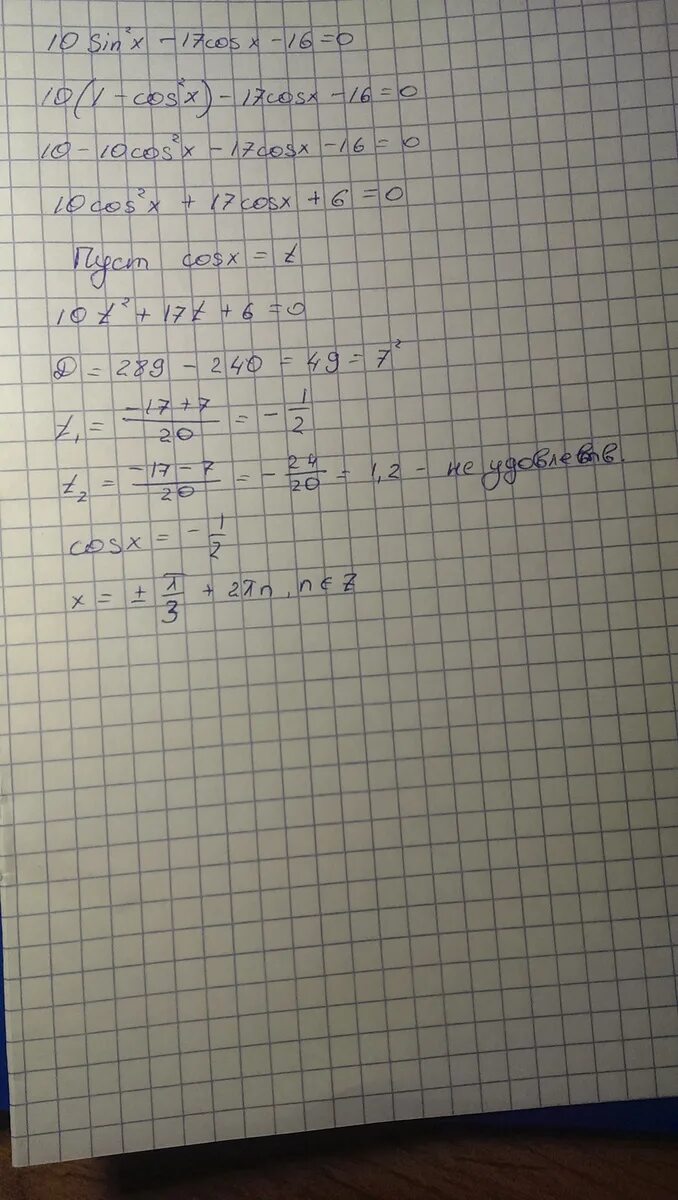 10 sin²x - 17cosx - 16 = 0
10(1 - cos²x) - 17cosx - 16 = 0
10 - 10cos²x - 17cosx - 16 = 0
10cos²x + 17cosx + 6 = 0
Пуст cosx = t
10t² + 17t + 6 = 0
D = 289 - 240 = 49 = 7²
t₁ = (-17 + 7)/20 = -1/2
t₂ = (-17 - 7)/20 = -24/20 = 1,2 - не удовлетв.
cosx = -1/2
x = ± π/3 + 2πn, n ∈ Z